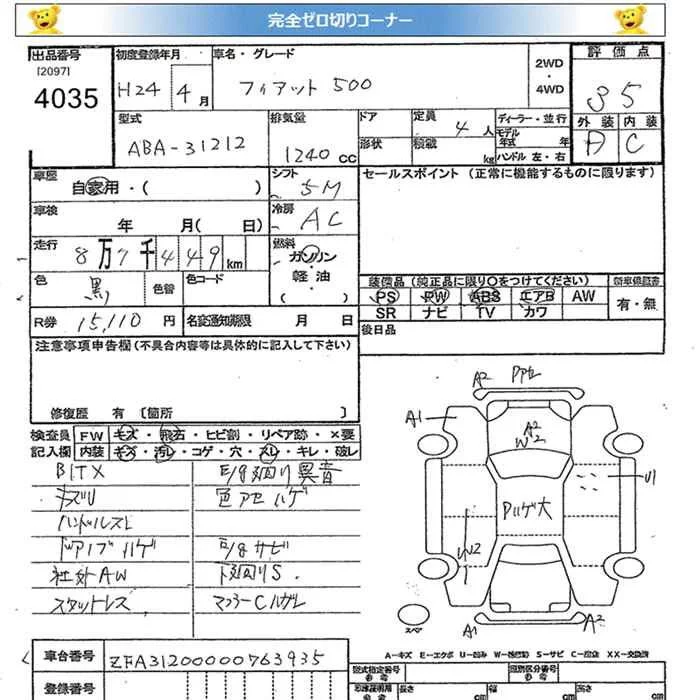 完全ゼロ切りコーナー
出品番号 初度登録年月 車名・グレード 2WD ・ 4WD 評価点
[2097]
4035 H24 4月 フィアット 500 35
型式 排気量 ドア 定員 4人 ディーラー・並行 外装 内装
ABA-31212 1240cc 形状 積載 kg モデル年式 年 A C
ハンドル 左・右
車歴 自家用・( ) シフト 5M セールスポイント (正常に機能するものに限ります)
車検 年 月( 日) 冷房 AC
走行 8万7千449km 燃料 ガソリン
軽・油
( )
色 黒 色替 色コード
装備品 (純正品に限り○をつけてください) 新車保証書
PS PW ABS エアB AW 有・無
SR ナビ TV カワ
R券 15,110円 名変通知期限 月 日
後日品
注意事項申告欄(不具合内容等は具体的に記入して下さい)
修復歴 有 [箇所 ]
検査員 FW キズ・飛石・ヒビ割・リペア跡・×要
記入欄 内装 キズ・汚レ・コゲ・穴・スレ・キレ・破レ
BITX E/g廻り異音
キズU 色アセハゲ
ハンドルスレ
ドアノブハゲ E/gサビ
社外AW 下廻りS.
スタットレス マフラーCハガレ
A2 Pアセ
A1 A2
W2
U1
Pハゲ大
W2
スペア
A1 A2
A-キズ E-エクボ U-凹み W-補修跡 S-サビ C-腐食 XX-交換済
車台番号 ZFA31200000763935
登録番号
型式指定番号 参考 類別区分番号 参考
長さ cm 幅 cm 高さ cm